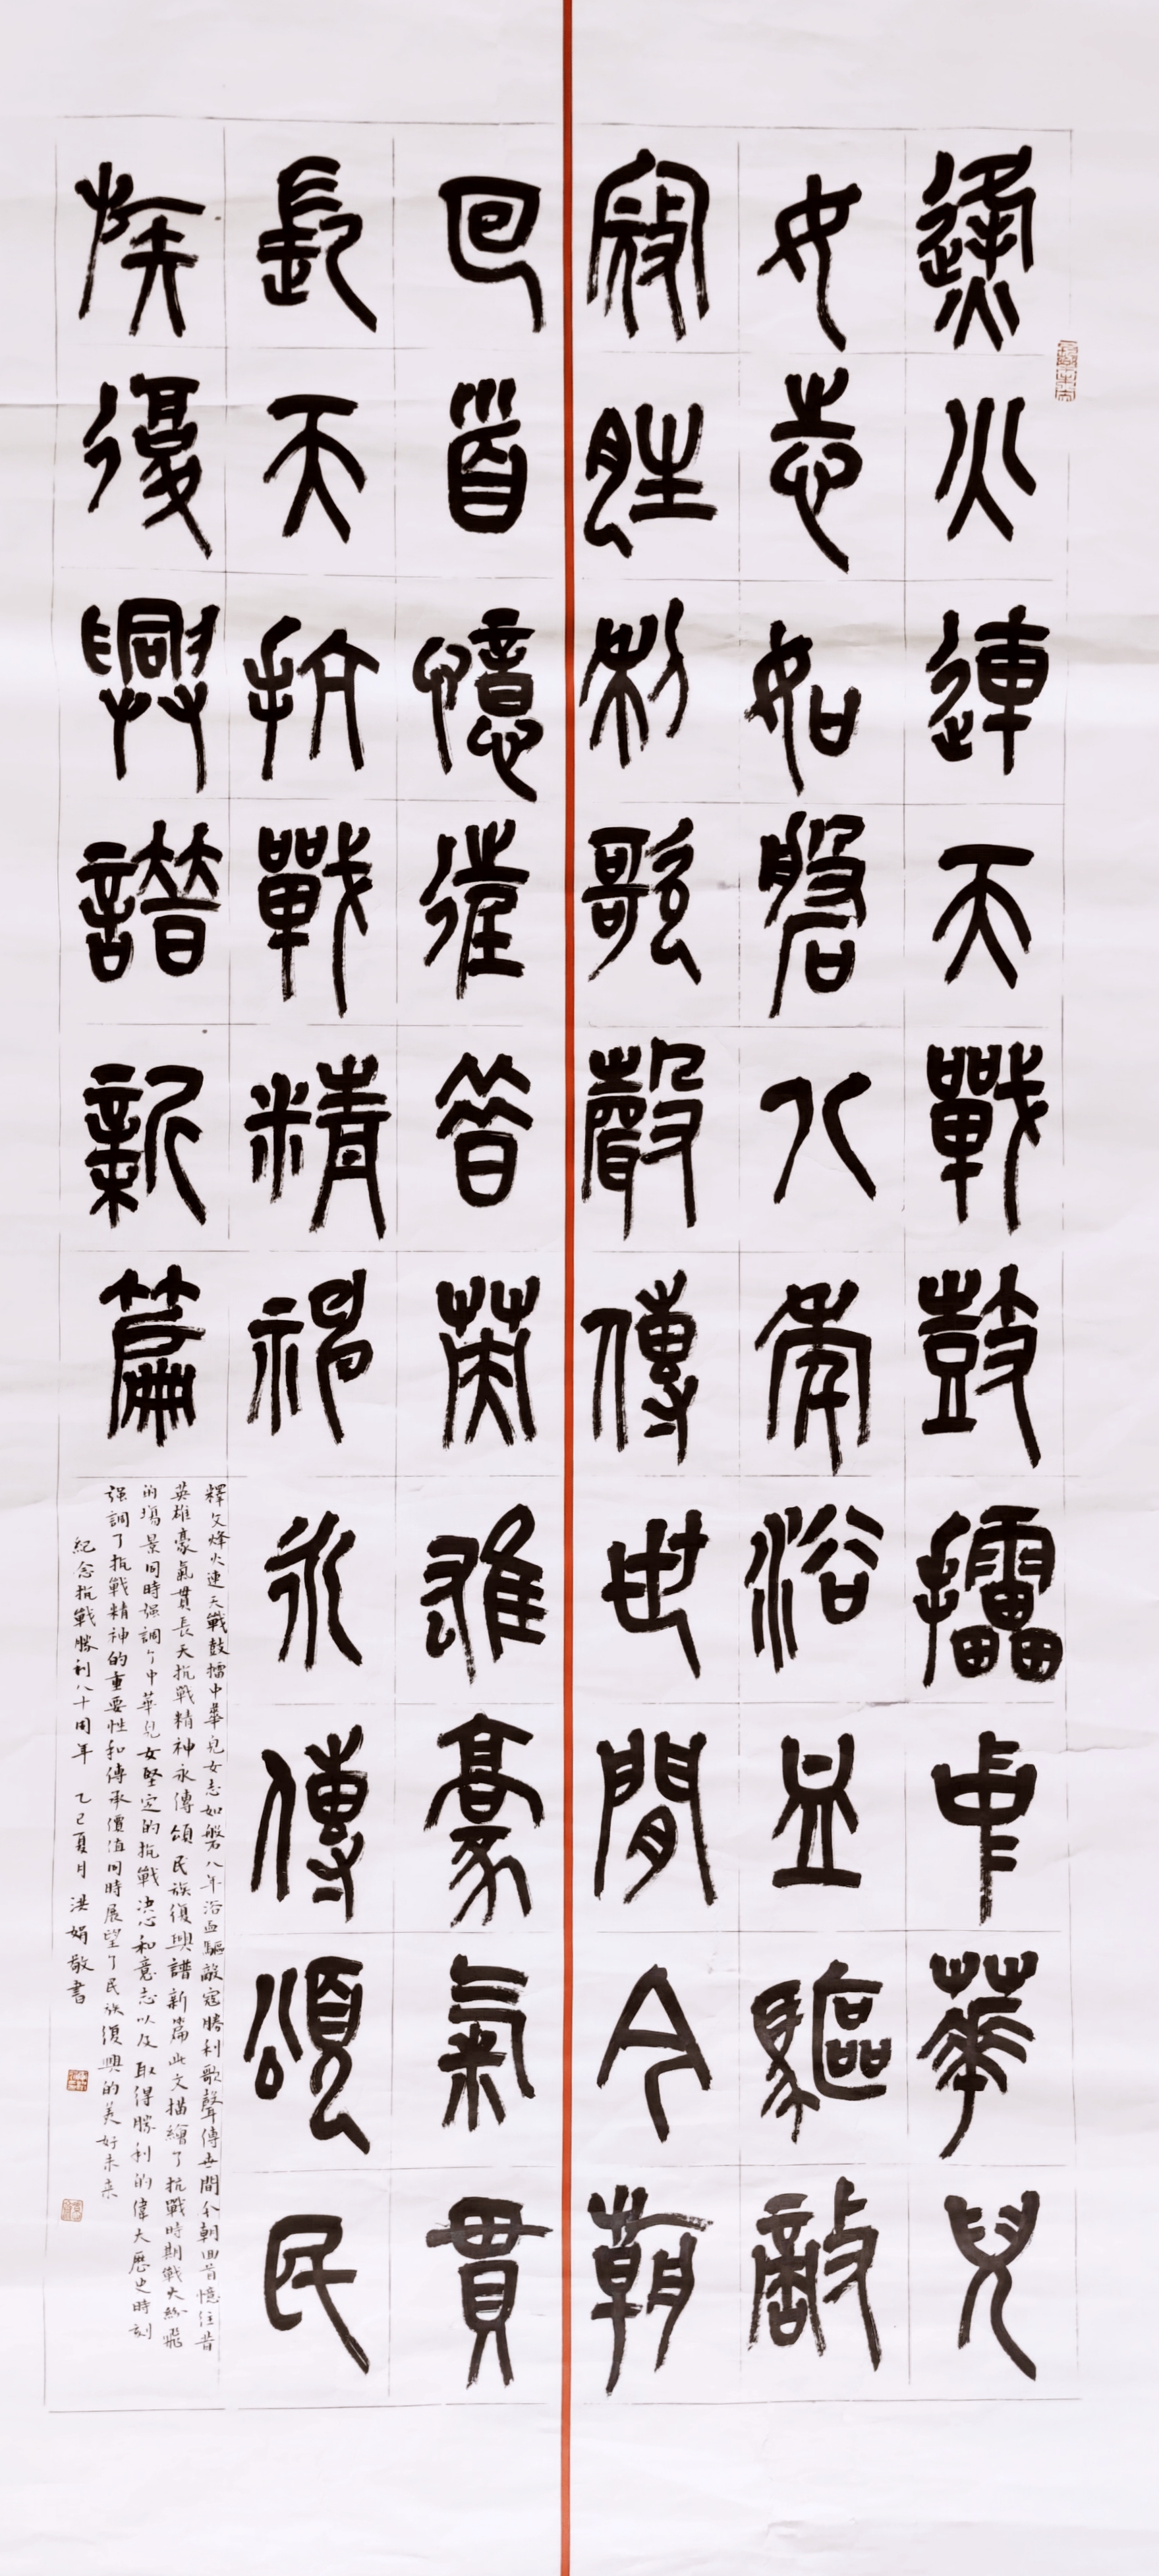 烽火連天戰鼓擂中華兒
女志如磐八年浴血驅敵
寇勝利歌聲傳世間今朝
回首憶往昔英雄豪氣貫
長天抗戰精神永傳頌民
族復興譜新篇
釋文烽火連天戰鼓擂中華兒女志如磐八年浴血驅敵寇勝利歌聲傳世間今朝回首憶往昔
英雄豪氣貫長天抗戰精神永傳頌民族復興譜新篇此文描繪了抗戰時期戰火紛飛
的場景同時强調了中華兒女堅定的抗戰决心和意志以及取得勝利的偉大歷史時刻
强調了抗戰精神的重要性和傳承價值同時展望了民族復興的美好未来
紀念抗戰勝利八十周年 乙巳夏月 洪娟敬書